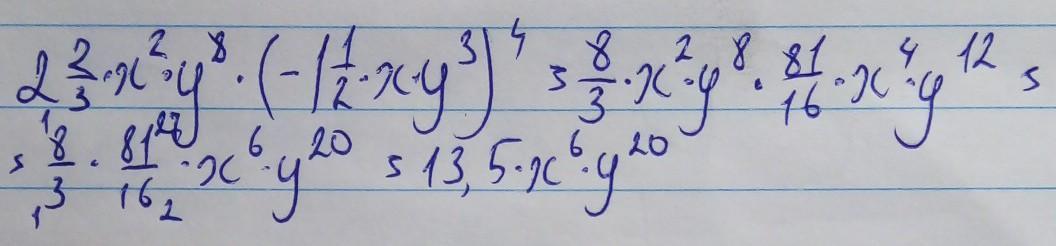 2 2/3 · x² · y⁸ · (-1 1/2 · x · y³)⁴ = 8/3 · x² · y⁸ · 81/16 · x⁴ · y¹² =
= ¹8/3₁ · 81²⁷/16₂ · x⁶ · y²⁰ = 13,5 · x⁶ · y²⁰